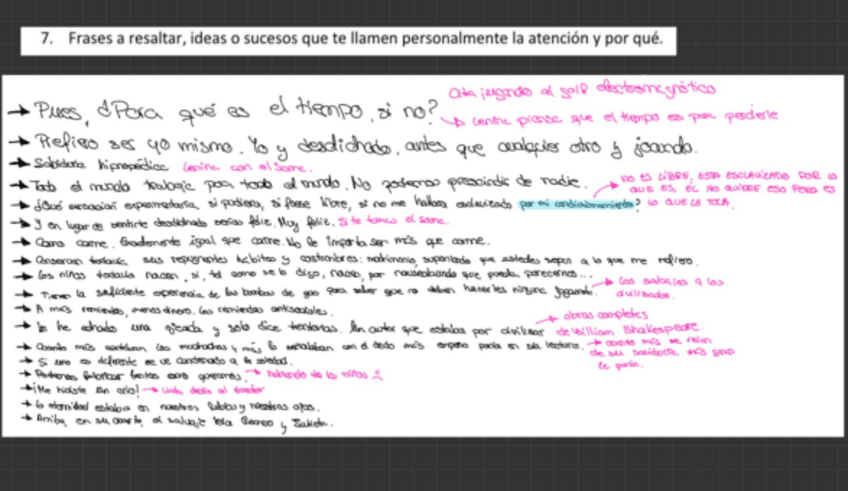 7. Frases a resaltar, ideas o sucesos que te llamen personalmente la atención y por qué.
Cita jugando al golf electromagnético
→ Pues, ¿Para qué es el tiempo, si no? ↳ Lenina piensa que el tiempo es para perderle
→ Prefiero ser yo mismo. Yo y desdichado, antes que cualquier otro y jocundo.
→ Sabiduría hipnopédica Lenina con el soma.
→ Todo el mundo trabaja para todo el mundo. No podemos prescindir de nadie. → NO ES LIBRE, ESTA ESCLAVIZADO POR LO
QUE ES, EL NO QUIERE ESO PERO ES
→ ¿Qué sensación experimentaría, si pudiera, si fuese libre, si no me hallara esclavizado por mi condicionamiento? LO QUE LE TOCA.
→ Y en lugar de sentirte desdichado serías feliz. Muy feliz. Si te tomas el soma.
→ Como carne. Exactamente igual que carne. No le importa ser más que carne.
→ Conservan todavía sus repugnantes hábitos y costumbres: matrimonio, suponiendo que ustedes sepan a lo que me refiero.
→ Los niños todavía nacen, sí, tal como se lo digo, nacen, por nauseabundo que pueda parecernos...
→ Tienen la suficiente experiencia de las bombas de gas para saber que no deben hacerles ninguna jugarreta. → Los salvajes a los
civilizados.
→ A más remiendos, menos dinero. Los remiendos antisociales.
→ obras completas
→ Le he echado una ojeada y solo dice tonterías. Un autor que estaba por civilizar de William Shakespeare.
→ Cuanto más los muchachos y más lo señalaban con el dedo más empeño ponía en su lectura. → cuanto más se reían
de su sabiduría más gana
le ponía.
→ Si uno es diferente se ve condenado a la soledad.
→ Podremos fabricar tantos como queramos. → hablando de los niños
→ ¡Me hiciste un crío! → Linda decía al director
→ La eternidad estaba en nuestros labios y nuestros ojos.
→ Arriba, en su cuarto, el salvaje leía Romeo y Julieta.